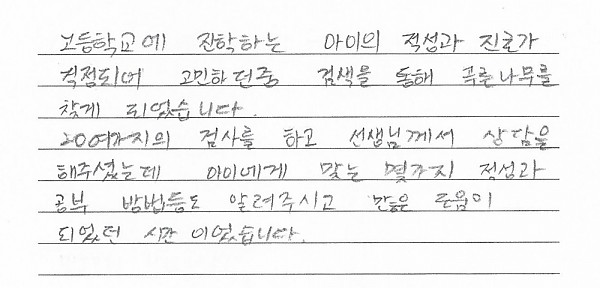 고등학교에 진학하는 아이의 적성과 진로가
걱정되어 고민하던중 검색을 통해 푸른나무를
찾게 되었습니다.
20여가지의 검사를 하고 선생님께서 상담을
해주셨는데 아이에게 맞는 몇가지 적성과
공부 방법등도 알려주시고 많은 도움이
되었던 시간 이었습니다.